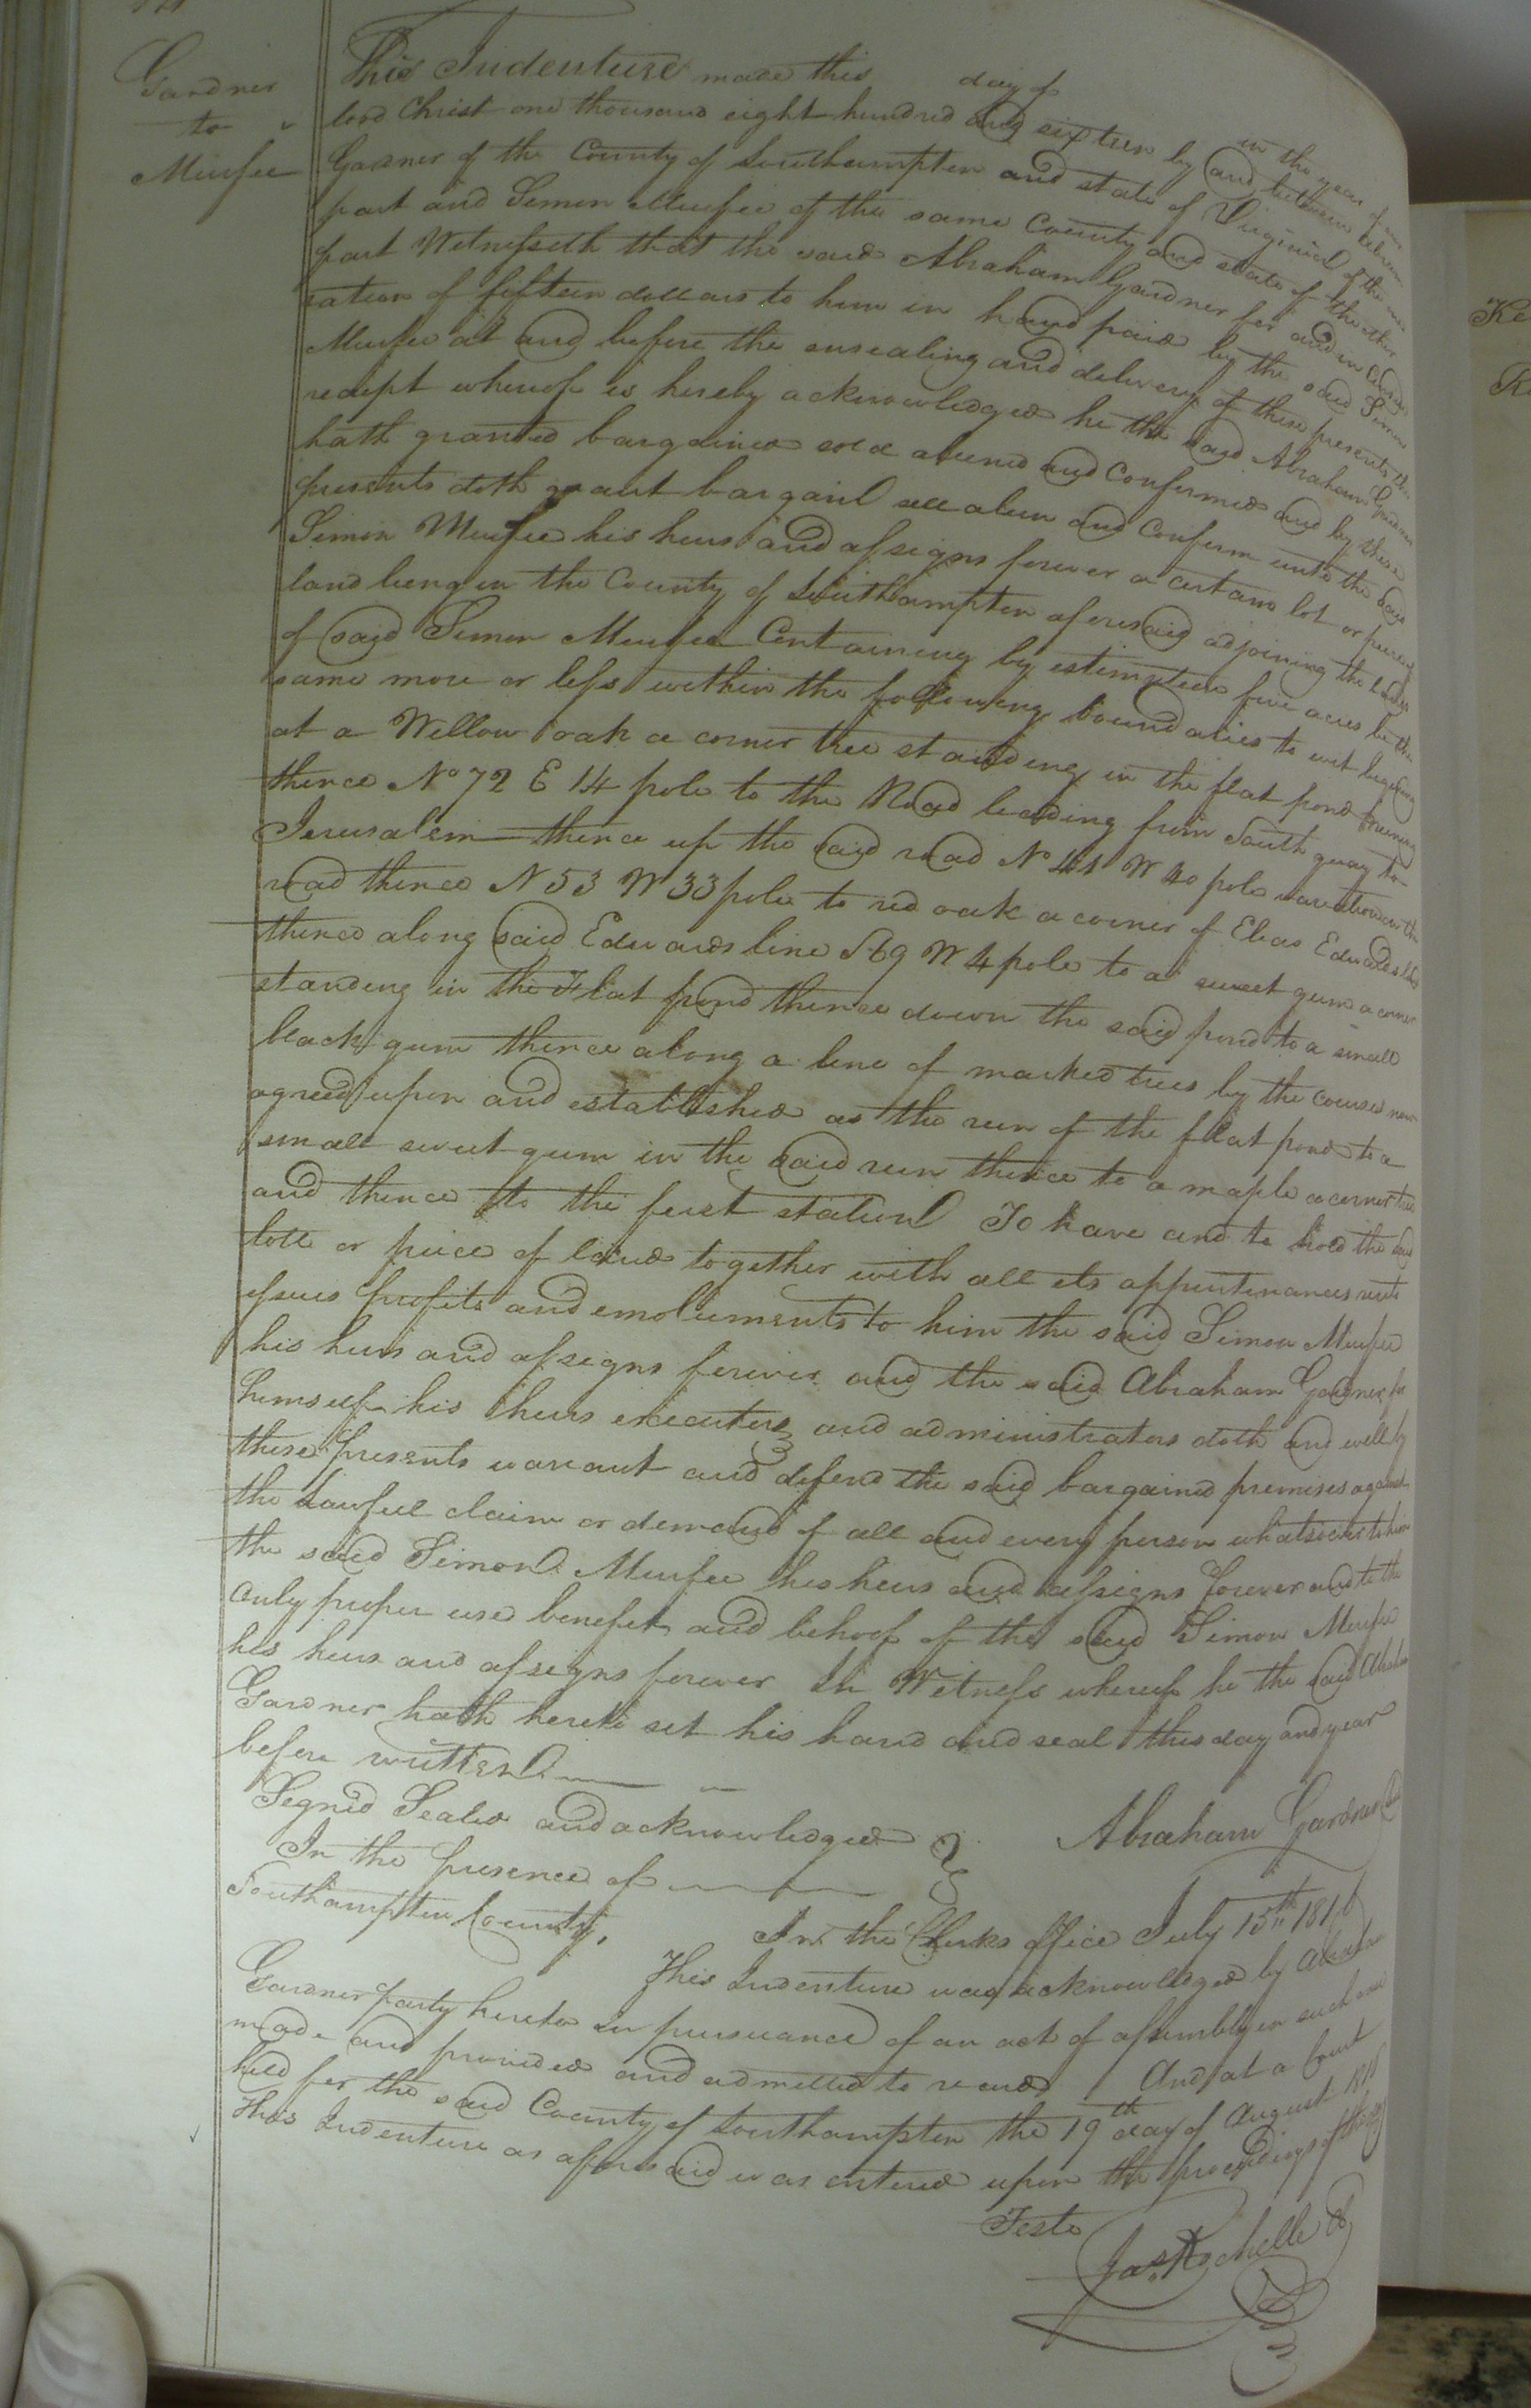 Gardner
to
Murfee
This Indenture made this day of in the year of our
lord Christ one thousand eight hundred and sixteen by and between Abram
Gardner of the County of Southampton and state of Virginia of the one
part and Simon Murfee of the same County and state of the other
part Witnesseth that the said Abraham Gardner for and in Consid
ration of fifteen dollars to him in hand paid by the said Simon
Murfee at and before the ensealing and delivery of these presents the
receipt whereof is hereby acknowledged he the said Abraham Gardner
hath granted bargained sold aliened and Confirmed and by these
presents doth grant bargain sell alien and Confirm unto the said
Simon Murfee his heirs and assigns forever a certain lot or piece of
land being in the County of Southampton aforesaid adjoining the lands
of said Simon Murfee Containing by estimation five acres be the
same more or less within the following boundaries to wit begining
at a Willow oak a corner tree standing in the flat pond runing
thence No 72 E 14 pole to the Road leading from South quay to
Jerusalem thence up the said road No 44 W 40 pole on the
road thence N 53 W 33 pole to red oak a corner of Elias Edwards
thence along said Edwards line S 69 W 4 pole to a sweet gum a corner
standing in the Flat pond thence down the said pond to a small
black gum thence along a line of marked trees by the courses now
agreed upon and established as the run of the flat pond to a
small sweet gum in the said run thence to a maple a corner tree
and thence to the first station To have and to hold the said
lott or piece of land together with all its appurtenances rents
issues profits and emoluments to him the said Simon Murfee
his heirs and assigns forever and the said Abraham Gardner for
himself his heirs executors and administrators doth and will by
these presents warrant and defend the said bargained premises against
the Lawfull claim or demand of all and every person whatsoever to him
the said Simon Murfee his heirs and assigns forever and to the
only proper use benefit and behoof of the said Simon Murfee
his heirs and assigns forever In Witness whereof he the said Abraham
Gardner hath hereto set his hand and seal this day and year
before written
Signed Sealed and acknowledged
Abraham Gardner
In the presence of
Southampton County,
In the Clerks office July 15th 1816
This Indenture was acknowledged by Abraham
Gardner party hereto in pursuance of an act of assembly in such case
made and provided and admitted to record And at a Court
held for the said County of Southampton the 19th day of August 1816
This Indenture as aforesaid was entered upon the proceedings of the
Teste
Jas Rochelle